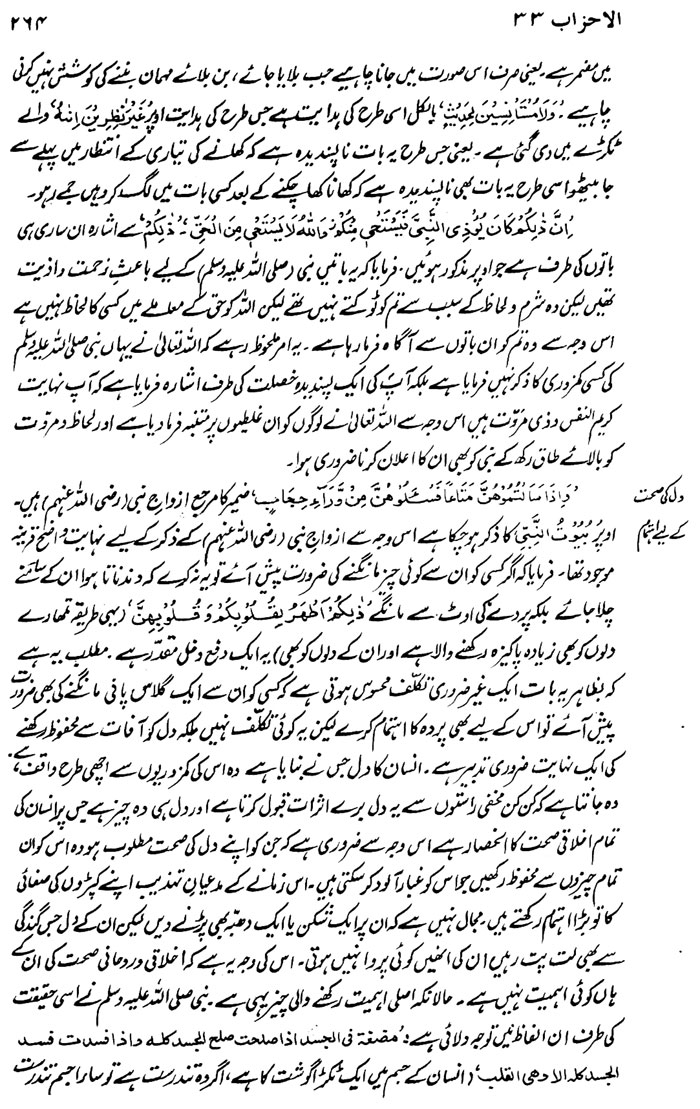 الاحزاب ۳۳
۲۶۴
میں مضمر ہے۔ یعنی صرف اس صورت میں جانا چاہیے جب بلایا جائے، بن بلائے مہمان بننے کی کوشش نہیں کرنی
چاہیے۔ 'وَلَا مُسْتَاْنِسِیْنَ لِحَدِیْثٍ' بالکل اسی طرح کی ہدایت ہے جس طرح کی ہدایت اوپر 'غَیْرَ نٰظِرِیْنَ اِنٰىهُ' والے
ٹکڑے میں دی گئی ہے۔ یعنی جس طرح یہ بات ناپسندیدہ ہے کہ کھانے کی تیاری کے انتظار میں پہلے سے
جا بیٹھو اسی طرح یہ بات بھی ناپسندیدہ ہے کہ کھانا کھا چکنے کے بعد کسی بات میں لگ کر وہیں جمے رہو۔
'اِنَّ ذٰلِکُمْ کَانَ یُؤْذِی النَّبِیَّ فَیَسْتَحْیٖ مِنْکُمْ وَاللّٰهُ لَا یَسْتَحْیٖ مِنَ الْحَقِّ'۔ 'ذٰلِکُمْ' سے اشارہ ان ساری ہی
باتوں کی طرف ہے جو اوپر مذکور ہوئیں۔ فرمایا کہ یہ باتیں نبی (صلی اللہ علیہ وسلم) کے لیے باعثِ زحمت و اذیت
تھیں لیکن وہ شرم و لحاظ کے سبب سے تم کو ٹوکتے نہیں تھے لیکن اللہ کو حق کے معاملے میں کسی کا لحاظ نہیں ہے
اس وجہ سے وہ تم کو ان باتوں سے آگاہ فرما رہا ہے۔ یہ امر ملحوظ رہے کہ اللہ تعالیٰ نے یہاں نبی صلی اللہ علیہ وسلم
کی کسی کمزوری کا ذکر نہیں فرمایا ہے بلکہ آپ کی ایک پسندیدہ خصلت کی طرف اشارہ فرمایا ہے کہ آپ نہایت
کریم النفس و ذی مروّت ہیں اس وجہ سے اللہ تعالیٰ نے لوگوں کو ان غلطیوں پر متنبہ فرما دیا ہے اور لحاظ و مروّت
کو بالائے طاق رکھ کے نبی کو بھی ان کا اعلان کرنا ضروری ہوا۔
دل کی صحت
کے لیے اہتمام
'وَاِذَا سَاَلْتُمُوْهُنَّ مَتَاعًا فَسْـَٔلُوْهُنَّ مِنْ وَّرَآءِ حِجَابٍ' ضمیر کا مرجع ازواجِ نبی (رضی اللہ عنہم) ہیں۔
اوپر بُیُوْتَ النَّبِیِّ کا ذکر ہو چکا ہے اس وجہ سے ازواجِ نبی (رضی اللہ عنہم) کے ذکر کے لیے نہایت واضح قرینہ
موجود تھا۔ فرمایا کہ اگر کسی کو ان سے کوئی چیز مانگنے کی ضرورت پیش آئے تو یہ نہ کرے کہ دندناتا ہوا ان کے سامنے
چلا جائے بلکہ پردے کی اوٹ سے مانگے 'ذٰلِکُمْ اَطْهَرُ لِقُلُوْبِکُمْ وَقُلُوْبِهِنَّ' (یہی طریقہ تمھارے
دلوں کو بھی زیادہ پاکیزہ رکھنے والا ہے اور ان کے دلوں کو بھی) یہ ایک دفع دخل مقدر ہے۔ مطلب یہ ہے
کہ بظاہر یہ بات ایک غیر ضروری تکلّف محسوس ہوتی ہے کہ کسی کو ان سے ایک گلاس پانی مانگنے کی بھی ضرورت
پیش آئے تو اس کے لیے بھی پردہ کا اہتمام کرے لیکن یہ کوئی تکلّف نہیں بلکہ دل کو آفات سے محفوظ رکھنے
کی ایک نہایت ضروری تدبیر ہے۔ انسان کا دل جس نے بنایا ہے وہ اس کی کمزوریوں سے اچھی طرح واقف ہے،
وہ جانتا ہے کہ کن کن مخفی راستوں سے یہ دل برے اثرات قبول کرتا ہے اور دل ہی وہ چیز ہے جس پر انسان کی
تمام اخلاقی صحت کا انحصار ہے اس وجہ سے ضروری ہے کہ جن کو اپنے دل کی صحت مطلوب ہو وہ اس کو ان
تمام چیزوں سے محفوظ رکھیں جو اس کو غبار آلود کر سکتی ہیں۔ اس زمانے کے مدعیانِ تہذیب اپنے کپڑوں کی صفائی
کا تو بڑا اہتمام رکھتے ہیں۔ مجال نہیں ہے کہ ان پر ایک شکن یا ایک دھبّہ بھی پڑنے دیں لیکن ان کے دل جس گندگی
سے بھی لت پت رہیں ان کی انھیں کوئی پروا نہیں ہوتی۔ اس کی وجہ یہ ہے کہ اخلاقی و روحانی صحت کی ان کے
ہاں کوئی اہمیت نہیں ہے۔ حالانکہ اصلی اہمیت رکھنے والی چیز یہی ہے۔ نبی صلی اللہ علیہ وسلم نے اسی حقیقت
کی طرف ان الفاظ میں توجہ دلائی ہے: 'مضغة فی الجسد اذا صلحت صلح الجسد کله واذا فسدت فسد
الجسد کله الا وهی القلب' (انسان کے جسم میں ایک ٹکڑا گوشت کا ہے، اگر وہ تندرست ہے تو سارا جسم تندرست